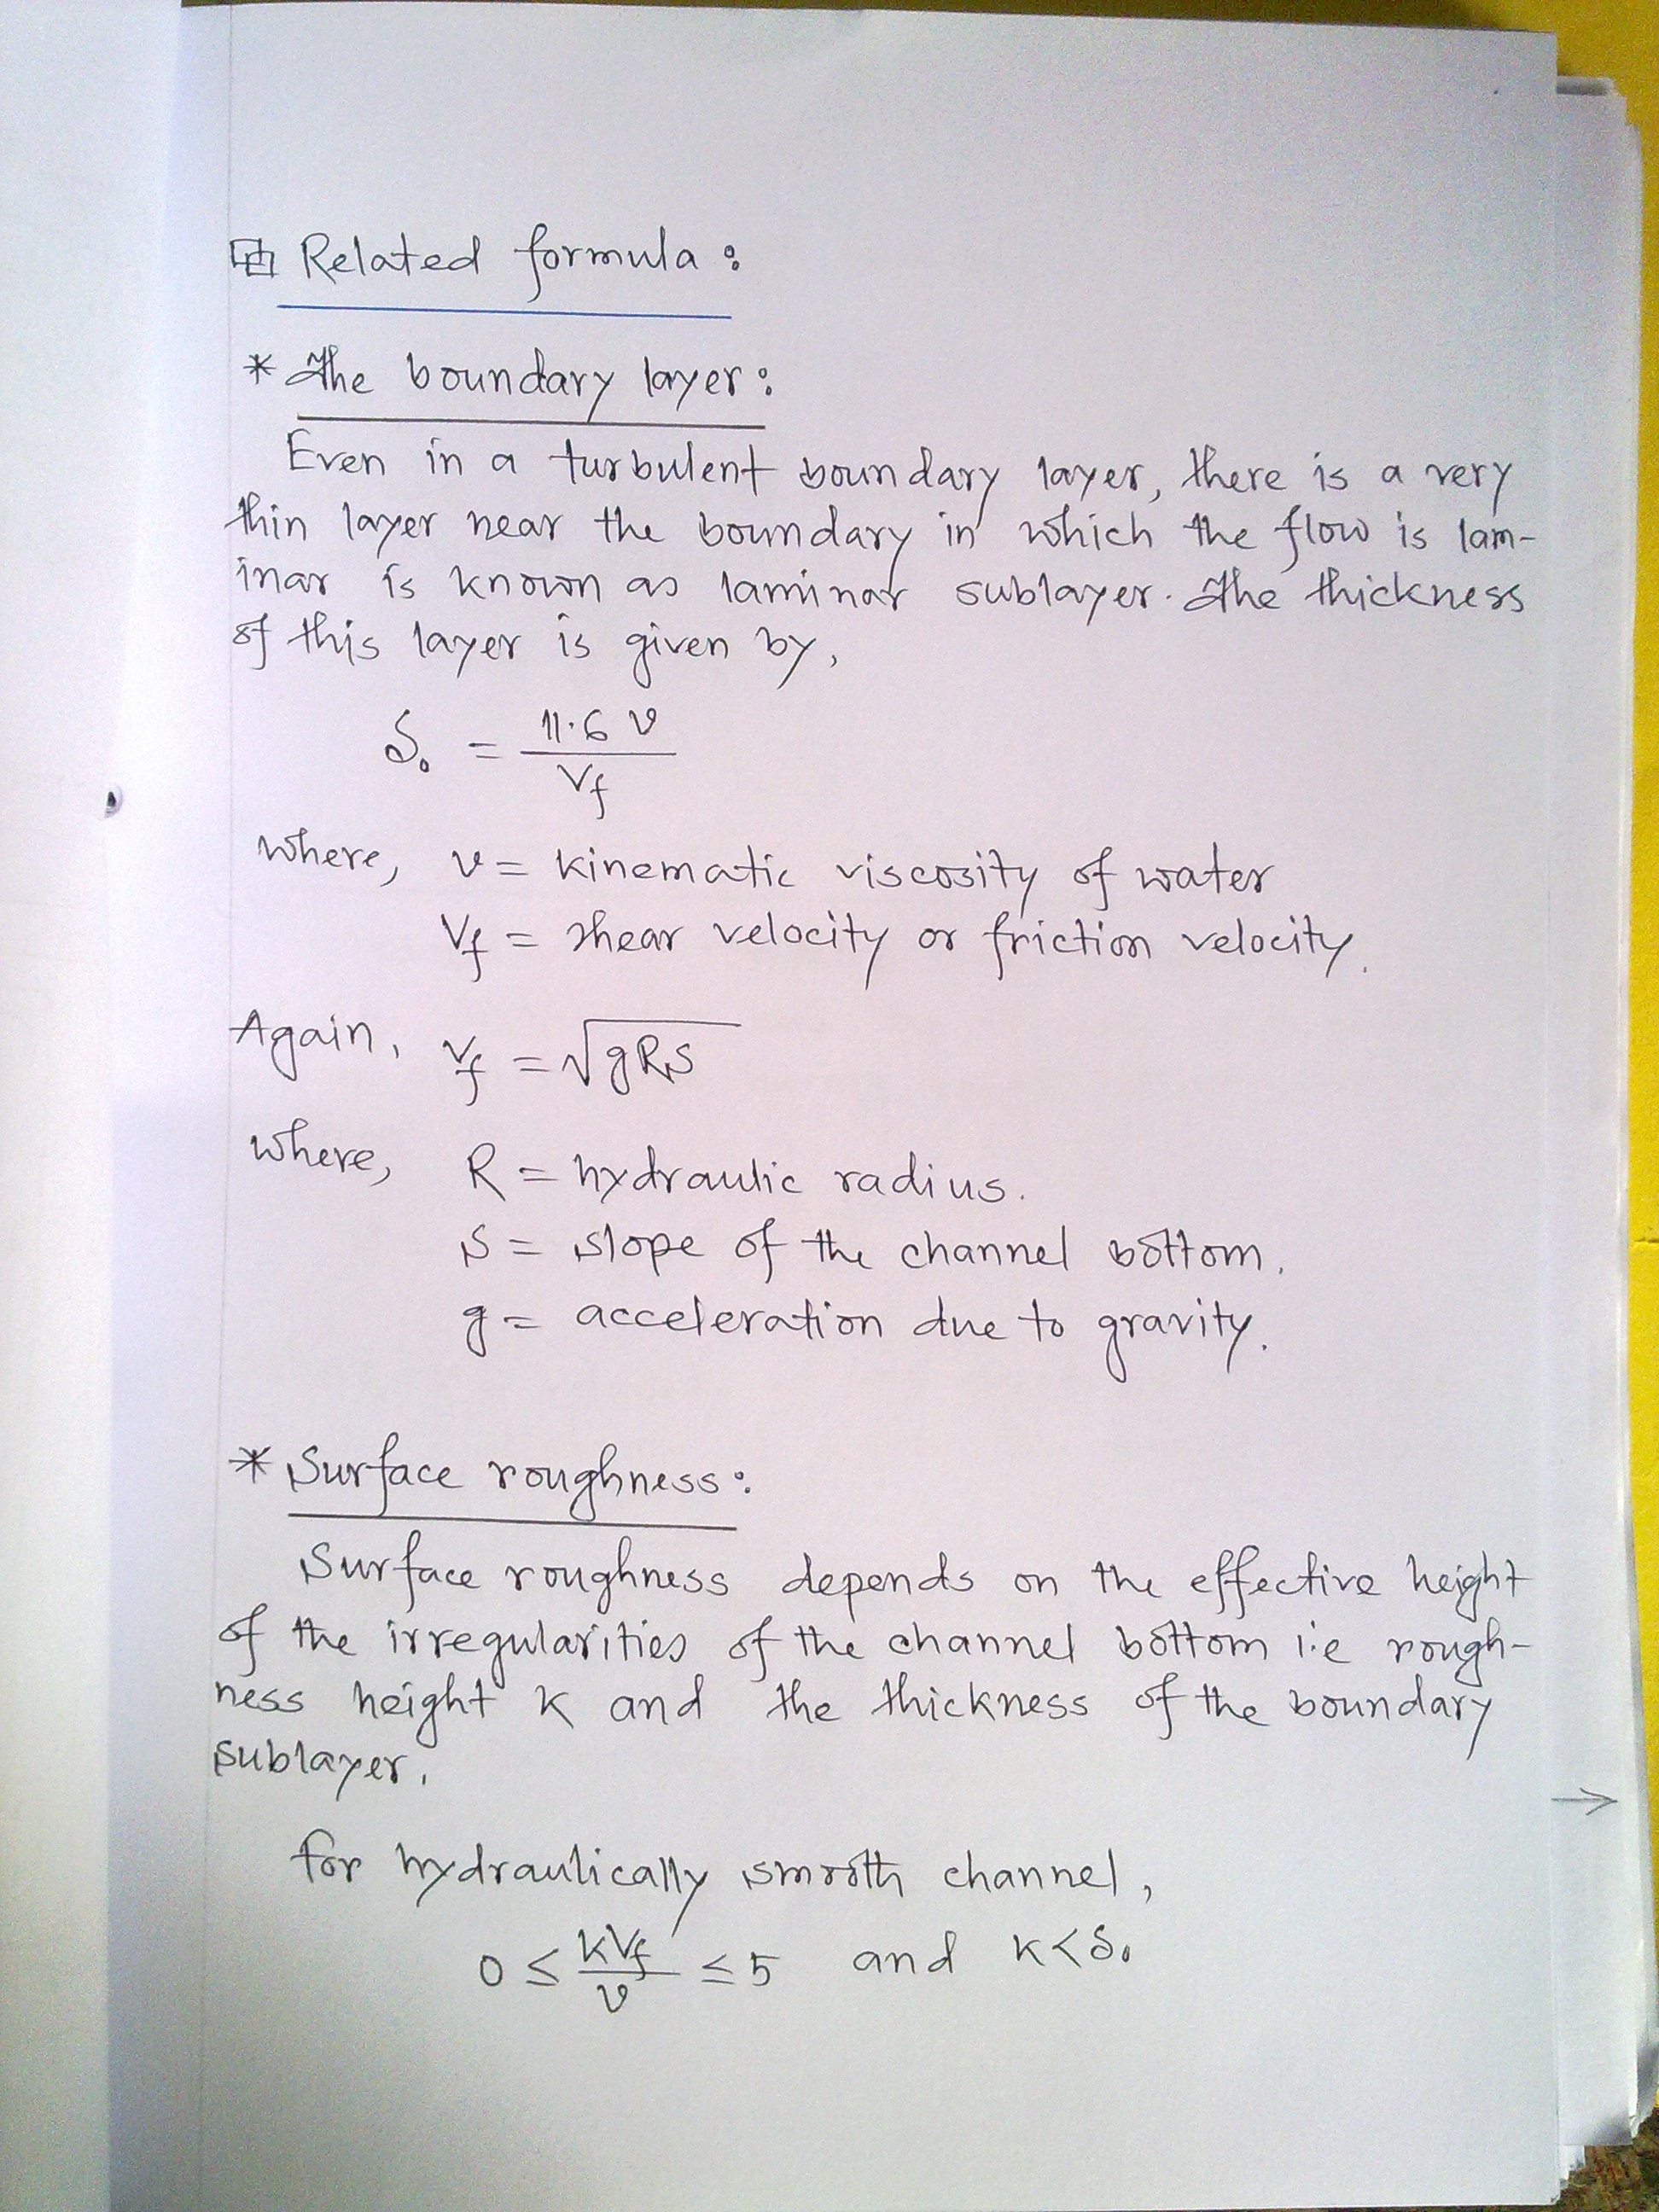 Related formula:
* The boundary layer:
Even in a turbulent boundary layer, there is a very
thin layer near the boundary in which the flow is lam-
inar is known as laminar sublayer. The thickness
of this layer is given by,
δ₀ = 11.6 ν / V_f
where, ν = kinematic viscosity of water
V_f = shear velocity or friction velocity.
Again, V_f = √gRS
where, R = hydraulic radius.
S = slope of the channel bottom.
g = acceleration due to gravity.
* Surface roughness:
Surface roughness depends on the effective height
of the irregularities of the channel bottom i.e rough-
ness height k and the thickness of the boundary
sublayer.
→
for hydraulically smooth channel,
0 ≤ kV_f / ν ≤ 5 and k < δ₀